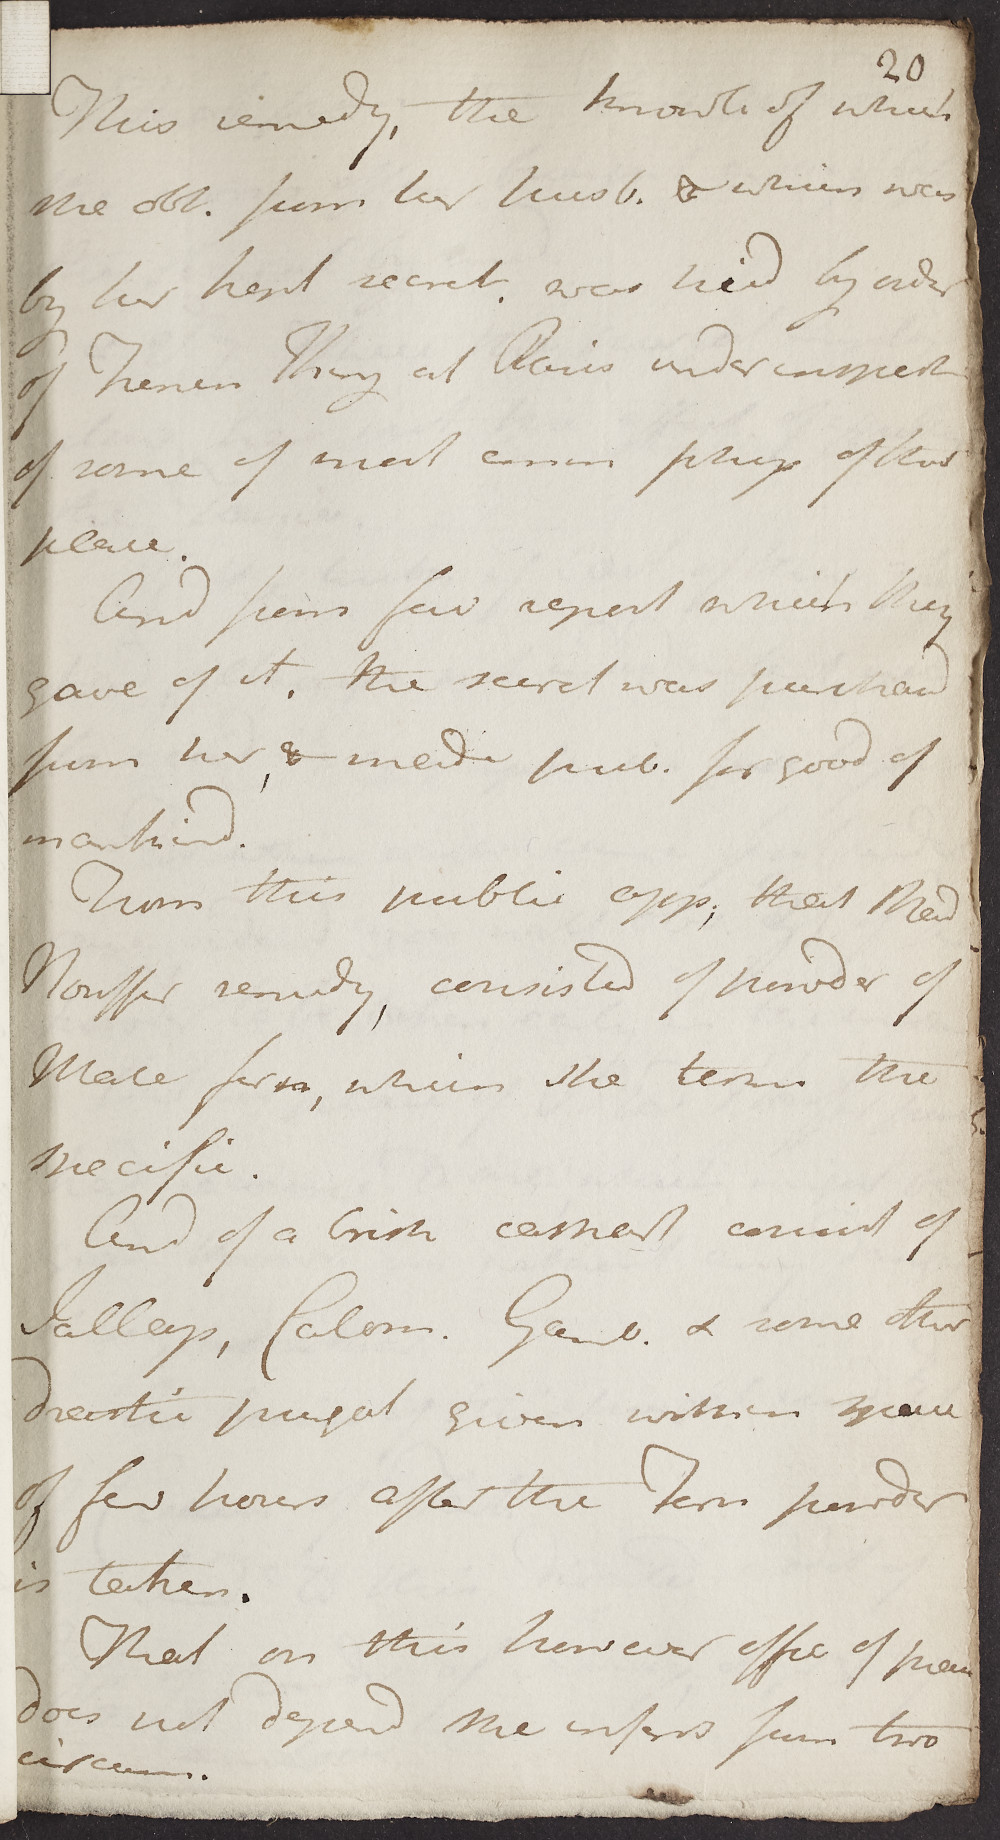 20
This remedy, the knowle of which
she obt. from her husb. & which was
by her kept secret. was tried by order
of French King at Paris under inspect
of some of most emin phys of that
place.
And from fav report which they
gave of it. the secret was purchasd
from her, & made pub. for good of
mankind.
From this public app; that Mad
Nouffer remedy, consisted of powder of
Male fern, which she terms the
specific.
And of a brisk cathart consist of
Jallap, Calom. Gamb. & some other
drastic purgat given within space
of few hours after the Fern powder
is taken.
That on this however effic of
does not depend she infers from two
circum.